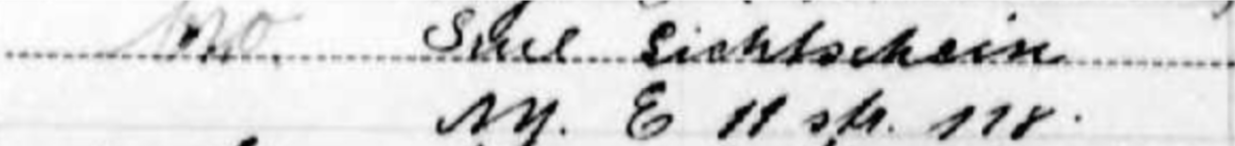 no. Saul Lichtschein
NY. E 11 str. 118.